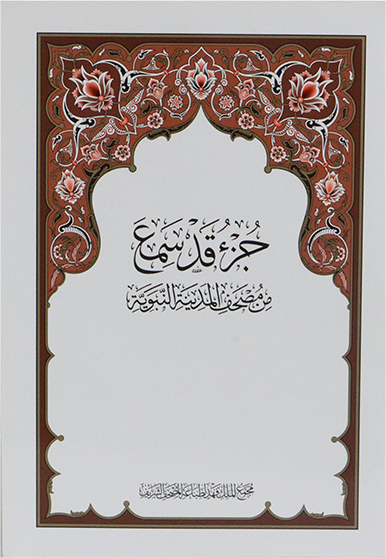 جُزْءُ قَدْ سَمِعَ
مِن مُصْحَفِ المَدِينَةِ النَّبَوِيَّةِ
مجمع الملك فهد لطباعة المصحف الشريف